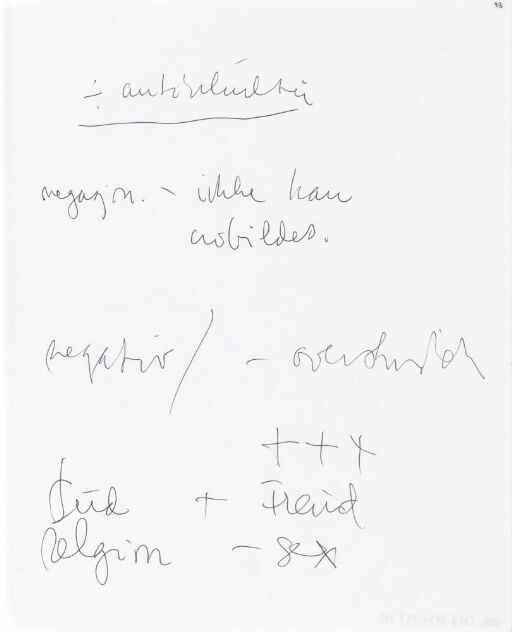 93
÷
negasjon. - ikke kan
avbildes.
negativ / -
+++
Gud + Freud
Religion - sex